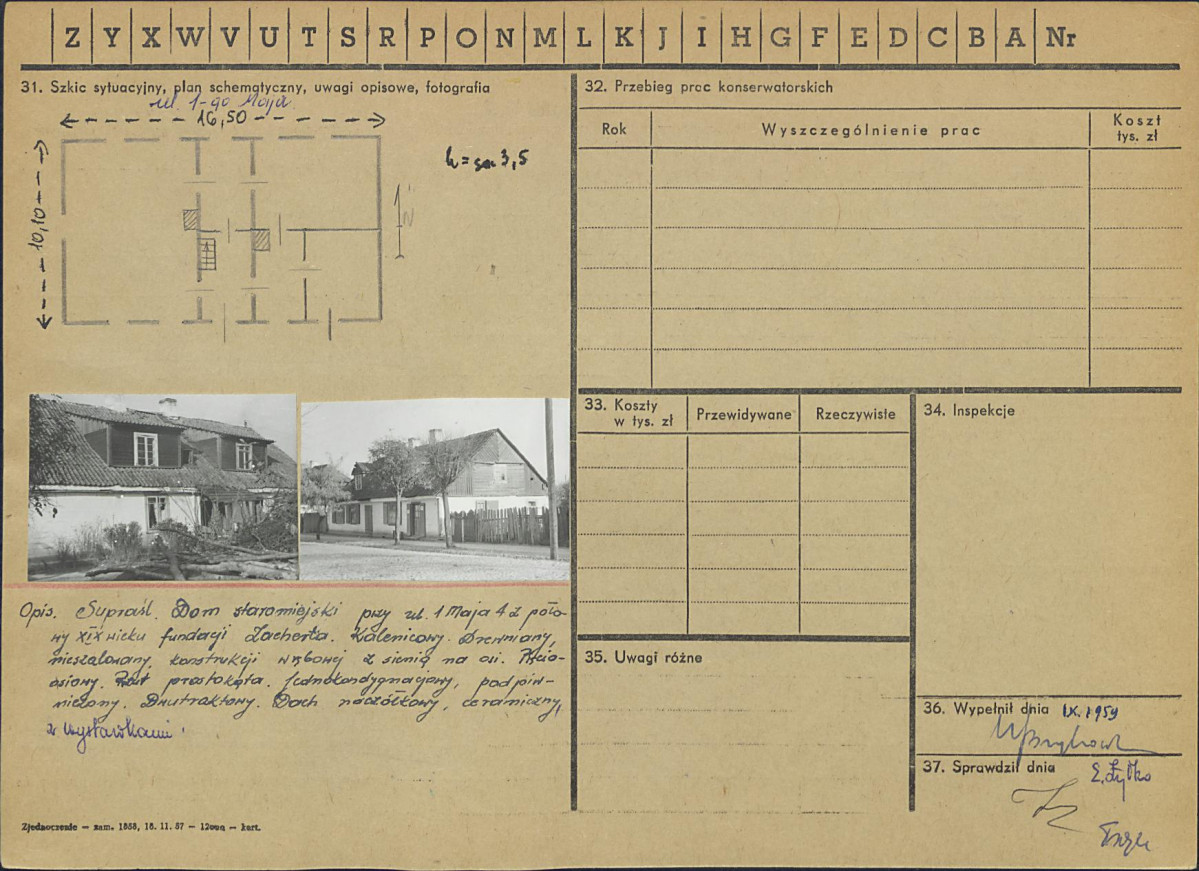 Z Y X W V U T S R P O N M L K J I H G F E D C B A Nr
31. Szkic sytuacyjny, plan schematyczny, uwagi opisowe, fotografia
ul. 1-go Maja
16,50
10,10
h = 3,5
N
Opis. Supraśl. Dom staromiejski przy ul. 1 Maja 4 z poło-
wy XIX wieku fundacji Zacherta. Kalenicowy. Drewniany,
nieszalowany, konstrukcji węgłowej z sienią na osi. Pięcio-
osiowy. Rzut prostokąta. Jednokondygnacyjny, podpiw-
niczony. Dwutraktowy. Dach naczółkowy, ceramiczny,
z wystawkami.
Zjednoczenie — zam. 1858, 18. 11. 57 — 12000 — kart.
32. Przebieg prac konserwatorskich
Rok Wyszczególnienie prac Koszt
tys. zł
33. Koszty
w tys. zł Przewidywane Rzeczywiste
34. Inspekcje
35. Uwagi różne
36. Wypełnił dnia IX.1959
37. Sprawdził dnia